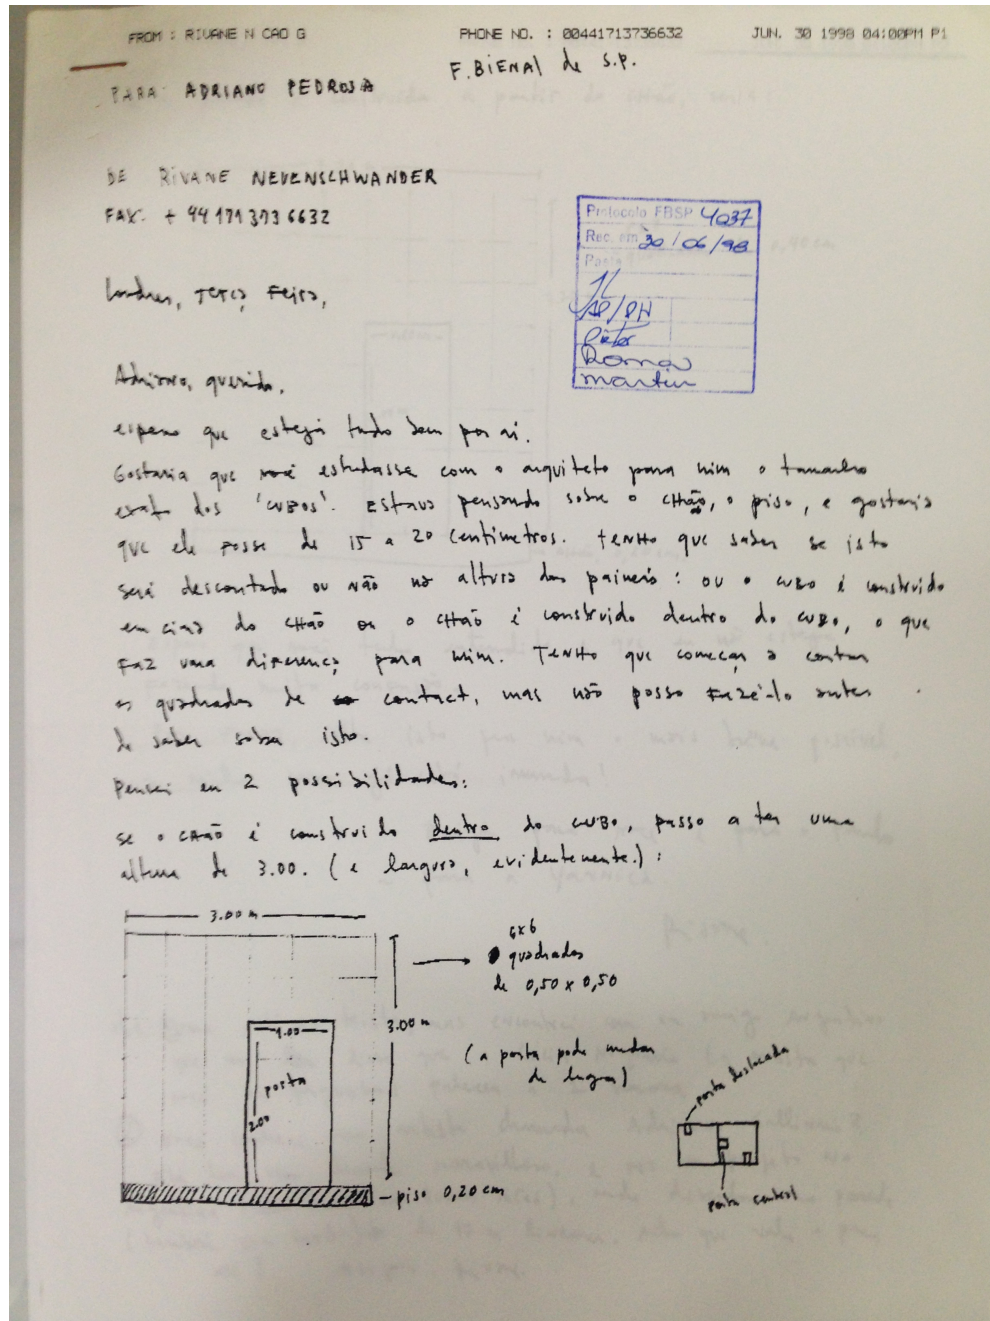 FROM : RIVANE N CAO G PHONE NO. : 00441713736632 JUN. 30 1998 04:00PM P1
F. BIENAL de S.P.
PARA: ADRIANO PEDROSA
DE RIVANE NEUENSCHWANDER
FAX: + 44 171 373 6632
Protocolo FBSP 4037
Rec. em 30/06/98
Pasta
AP/PH
Pieter
Roma
martin
Londres, Terça Feira,
Adriano, querido,
espero que esteja tudo bem por aí.
Gostaria que você estudasse com o arquiteto para mim o tamanho
exato dos 'CUBOS'. Estava pensando sobre o CHão, o piso, e gostaria
que ele fosse de 15 a 20 centímetros. tenHo que saber se isto
será descontado ou não na altura dos painéis: ou o cubo é construído
em cima do CHão ou o CHão é construído dentro do CUBO, o que
Faz uma diferença para mim. TenHo que começar a contar
os quadrados de contact, mas não posso Fazê-lo antes
de saber sobre isto.
Pensei em 2 possibilidades:
se o CHão é construído dentro do CUBO, passo a ter uma
altura de 3.00. (e largura, evidentemente.):
3.00 m
6x6
quadrados
de 0,50 x 0,50
3.00 m
1.00
porta
2.00
(a porta pode mudar
de lugar)
piso 0,20 cm
porta deslocada
porta central